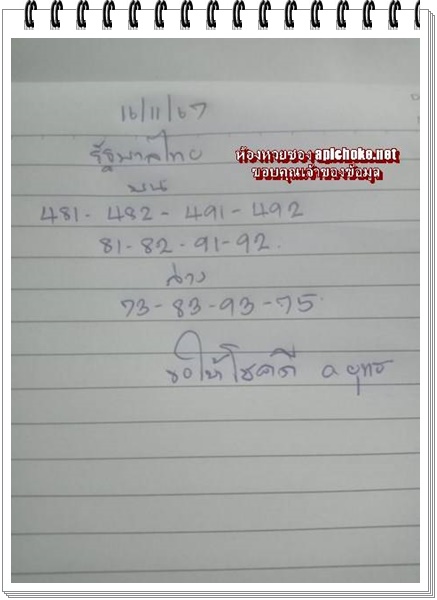 16/11/67
รัฐบาลไทย
ห้องหวยซองapichoke.net
ขอบคุณเจ้าของข้อมูล
บน
481 - 482 - 491 - 492
81 - 82 - 91 - 92.
ล่าง
73 - 83 - 93 - 75.
ขอให้โชคดี